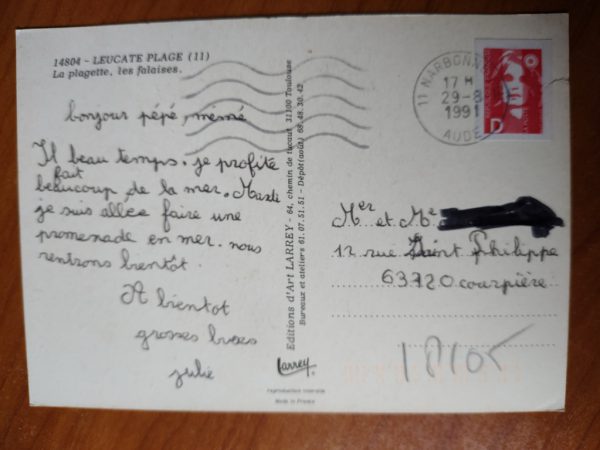 14804 - LEUCATE PLAGE (11)
La plagette, les falaises.
bonjour pépé, mémé
Il fait beau temps. je profite
beaucoup de la mer. Mardi
je suis allée faire une
promenade en mer. nous
rentrons bientot.
A bientot
grosses bises
julie
Editions d'Art LARREY - 64, chemin de tucaut 31100 Toulouse
Bureaux et ateliers 61.07.51.51 - Dépôt (août) 68.48.30.42
Larrey
reproduction interdite
Made in France
11 NARBONNE
17 H
29-8
1991
AUDE
D
Mer et Me
12 rue Saint Philippe
63720 courpière
18105